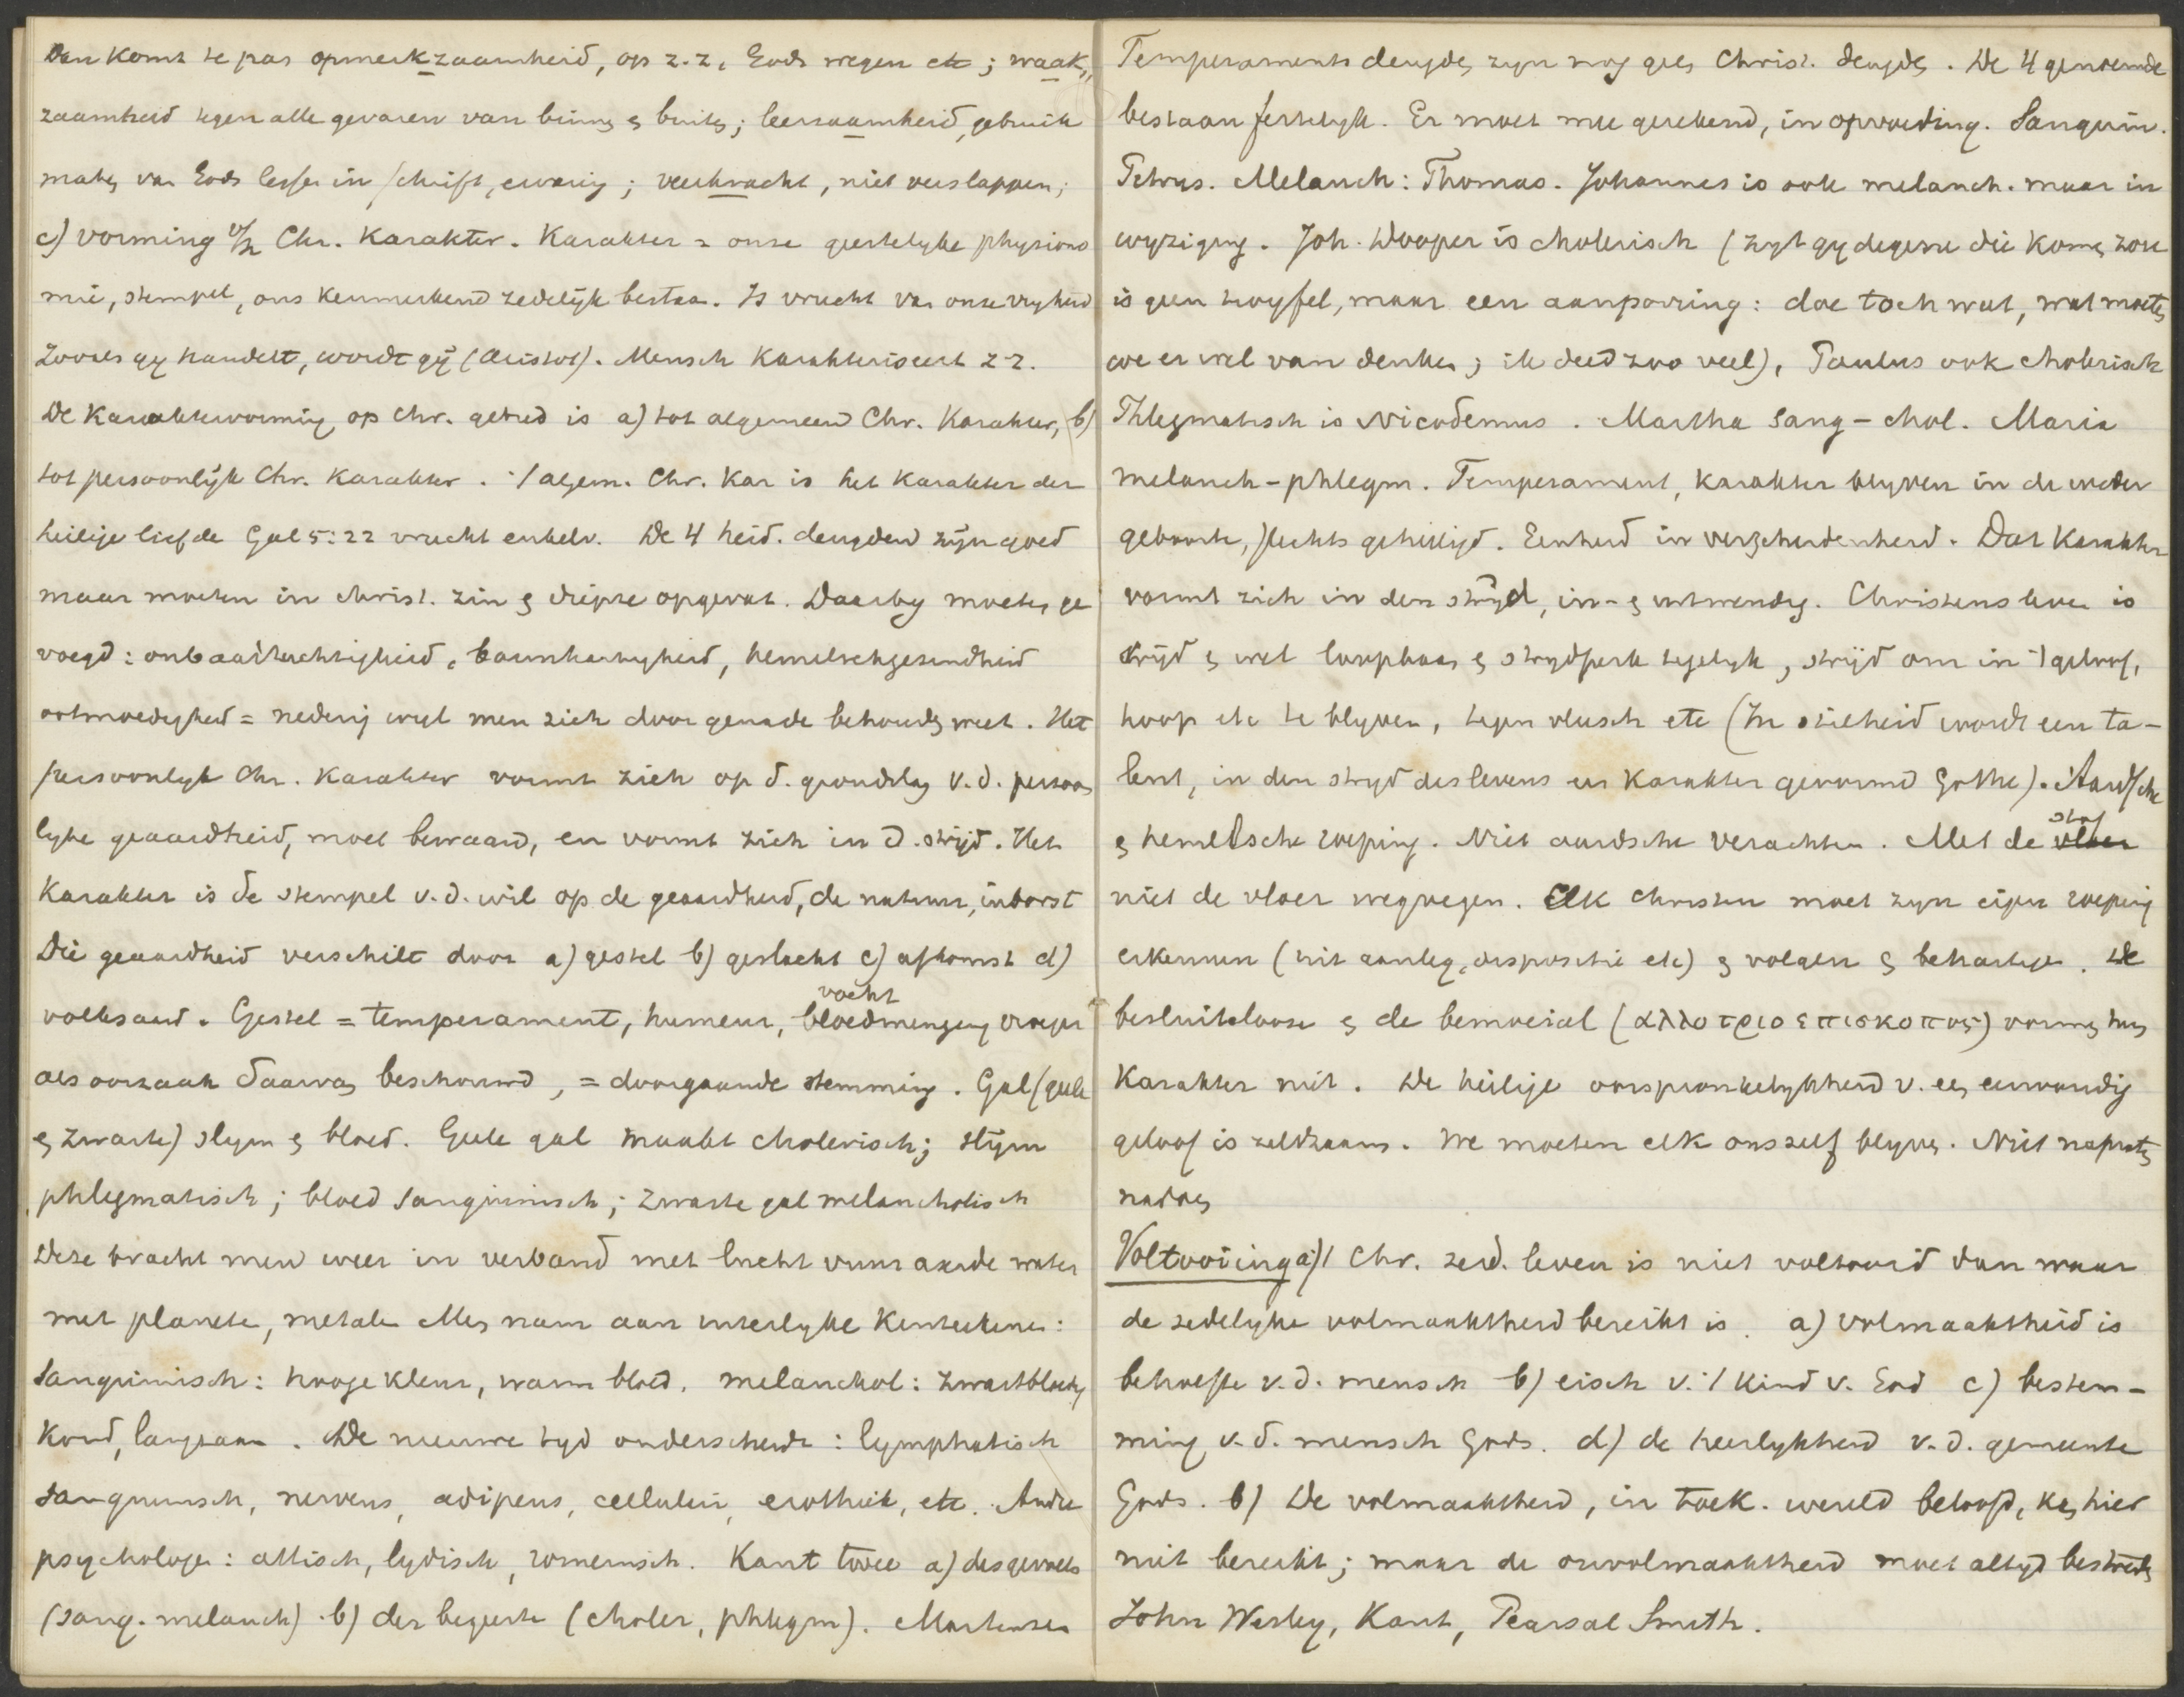 Dan komt te pas opmerkzaamheid, op z.z., Gods wegen etc; waak„
zaamheid tegen alle gevaren van binnen & buiten; leerzaamheid, gebruik
maken van Gods lessen in schrift, ervaring; veerkracht, niet verslappen;
c) vorming v/h Chr. Karakter. Karakter = onze geestelyke physiono
mie, stempel, ons kenmerkend zedelijk bestaan. Is vrucht van onze vryheid
Zooals gy handelt, wordt gÿ (Aristot). Mensch karakteriseert z z.
De Karaktervorming op Chr. gebied is a) tot algemeen Chr. Karakter, b)
tot persoonlijk Chr. Karakter. 't algem. Chr. Kar is het Karakter der
heilige liefde Gal 5:22 vrucht enkelv. De 4 heid. deugden zijn goed
maar moeten in christ. zin & diepte opgevat. Daarby moeten ge
voegd: onbaatzuchtigheid, barmhartigheid, hemelschgezindheid
ootmoedigheid = nederig wyl men zich door genade behouden weet. Het
persoonlyk Chr. Karakter vormt zich op d. grondslag v.d. persoon
lyke geaardheid, moet bewaard, en vormt zich in d. strijd. Het
Karakter is de stempel v.d. wil op de geaardheid, de natuur, inborst
Die geaardheid verschilt door a) gestel b) geslacht c) afkomst d)
volksaard. Gestel = temperament, humeur, bloedmenging vroeger
vocht
als oorzaak daarvan beschouwd, = doorgaande stemming. Gal (gele
& zwarte) slym & bloed. Gele gal maakt cholerisch; slijm
phlegmatisch; bloed sanguinisch; zwarte gal melancholisch
Deze bracht men weer in verband met lucht vuur aarde water
met planeten, metalen Men nam aan uiterlyke Kenteekenen:
Sanguinisch: hooge kleur, warm bloed. melanchol: zwartbloedig
Koud, langzaam. De nieuwe tyd onderscheidt: lymphatisch
sanguinisch, nerveus, adipeus, celluleus, erothiek, etc. Andre
psychologen: attisch, lydisch, romeinsch. Kant twee a) des gevoels
(sang. melanch) b) der begeerte (choler, phlegm). Martensen
Temperaments deugden zyn nog geen Christ. deugden. De 4 genoemde
bestaan feitelyk. Er moet mee gerekend, in opvoeding. Sanguin.
Petrus. Melanch: Thomas. Johannes is ook melanch. maar in
wyziging. Joh. Dooper is cholerisch (zyt gy degene die komen zou
is geen twyfel, maar een aanporring: doe toch wat, wat moeten
we er wel van denken; ik deed zoo veel), Paulus ook cholerisch
Phlegmatisch is Nicodemus. Martha sang-chol. Maria
melanch-phlegm. Temperament, karakter blyven in de weder
geboorte, slechts geheiligd. Eenheid in verscheidenheid. Dat Karakter
vormt zich in den strijd, in- & uitwendig. Christens leven is
strijd & wel loopbaan & strydperk tegelyk, strijd om in 't geloof,
hoop etc te blyven, tegen vleesch etc (In stilheid wordt een ta-
lent, in den stryd des levens een Karakter gevormd Göthe). Aardsche
& hemelsche roeping. Niet aardsche verachten. Met de vloer
stof
niet de vloer wegvegen. Elk christen moet zyn eigen roeping
erkennen (uit aanleg, dispositie etc) & volgen & behartigen. De
besluitelooze & de bemoeial (αλλοτριοεπισκοπος) vormen hun
Karakter niet. De heilige oorspronkelykheid v. een eenvoudig
geloof is zeldzaam. We moeten elk onszelf blyven. Niet napraten
nadoen
Voltooiing a) 't Chr. zed. leven is niet voltooid dan waar
de zedelyke volmaaktheid bereikt is. a) volmaaktheid is
behoefte v.d. mensch b) eisch v. 't kind v. God c) bestem-
ming v.d. mensch Gods. d) de heerlykheid v.d. gemeente
Gods. b) De volmaaktheid, in toek. wereld beloofd, kan hier
niet bereikt; maar de onvolmaaktheid moet altyd bestreden
John Wesley, Kant, Pearsal Smith.